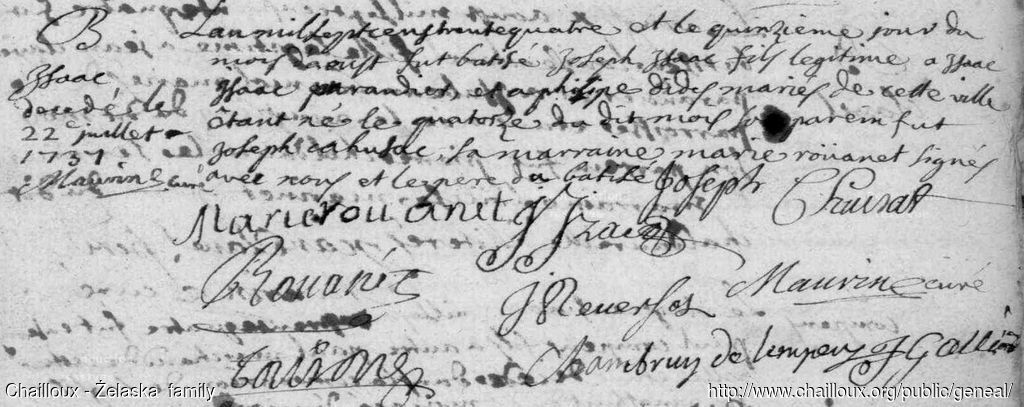 B
Izaac
decedé le
22e juillet
1737
Maurin curé
Lan mil sept cens trente quatre et le quinzieme jour du
mois daoust fut batisé Joseph Izaac fils legitime a Izaac
Izaac et a philipe dides mariés de cette ville
étant né le quatorze du dit mois parein fut
Joseph cabusac, sa marraine marie roüanet signés
avec nous et le pere du batisé Joseph
Marie rouanet J Izaac
Rouanet J Reversat Maurin curé
Chambrun de lempery
Chailloux - Želaska family http://www.chailloux.org/public/geneal/